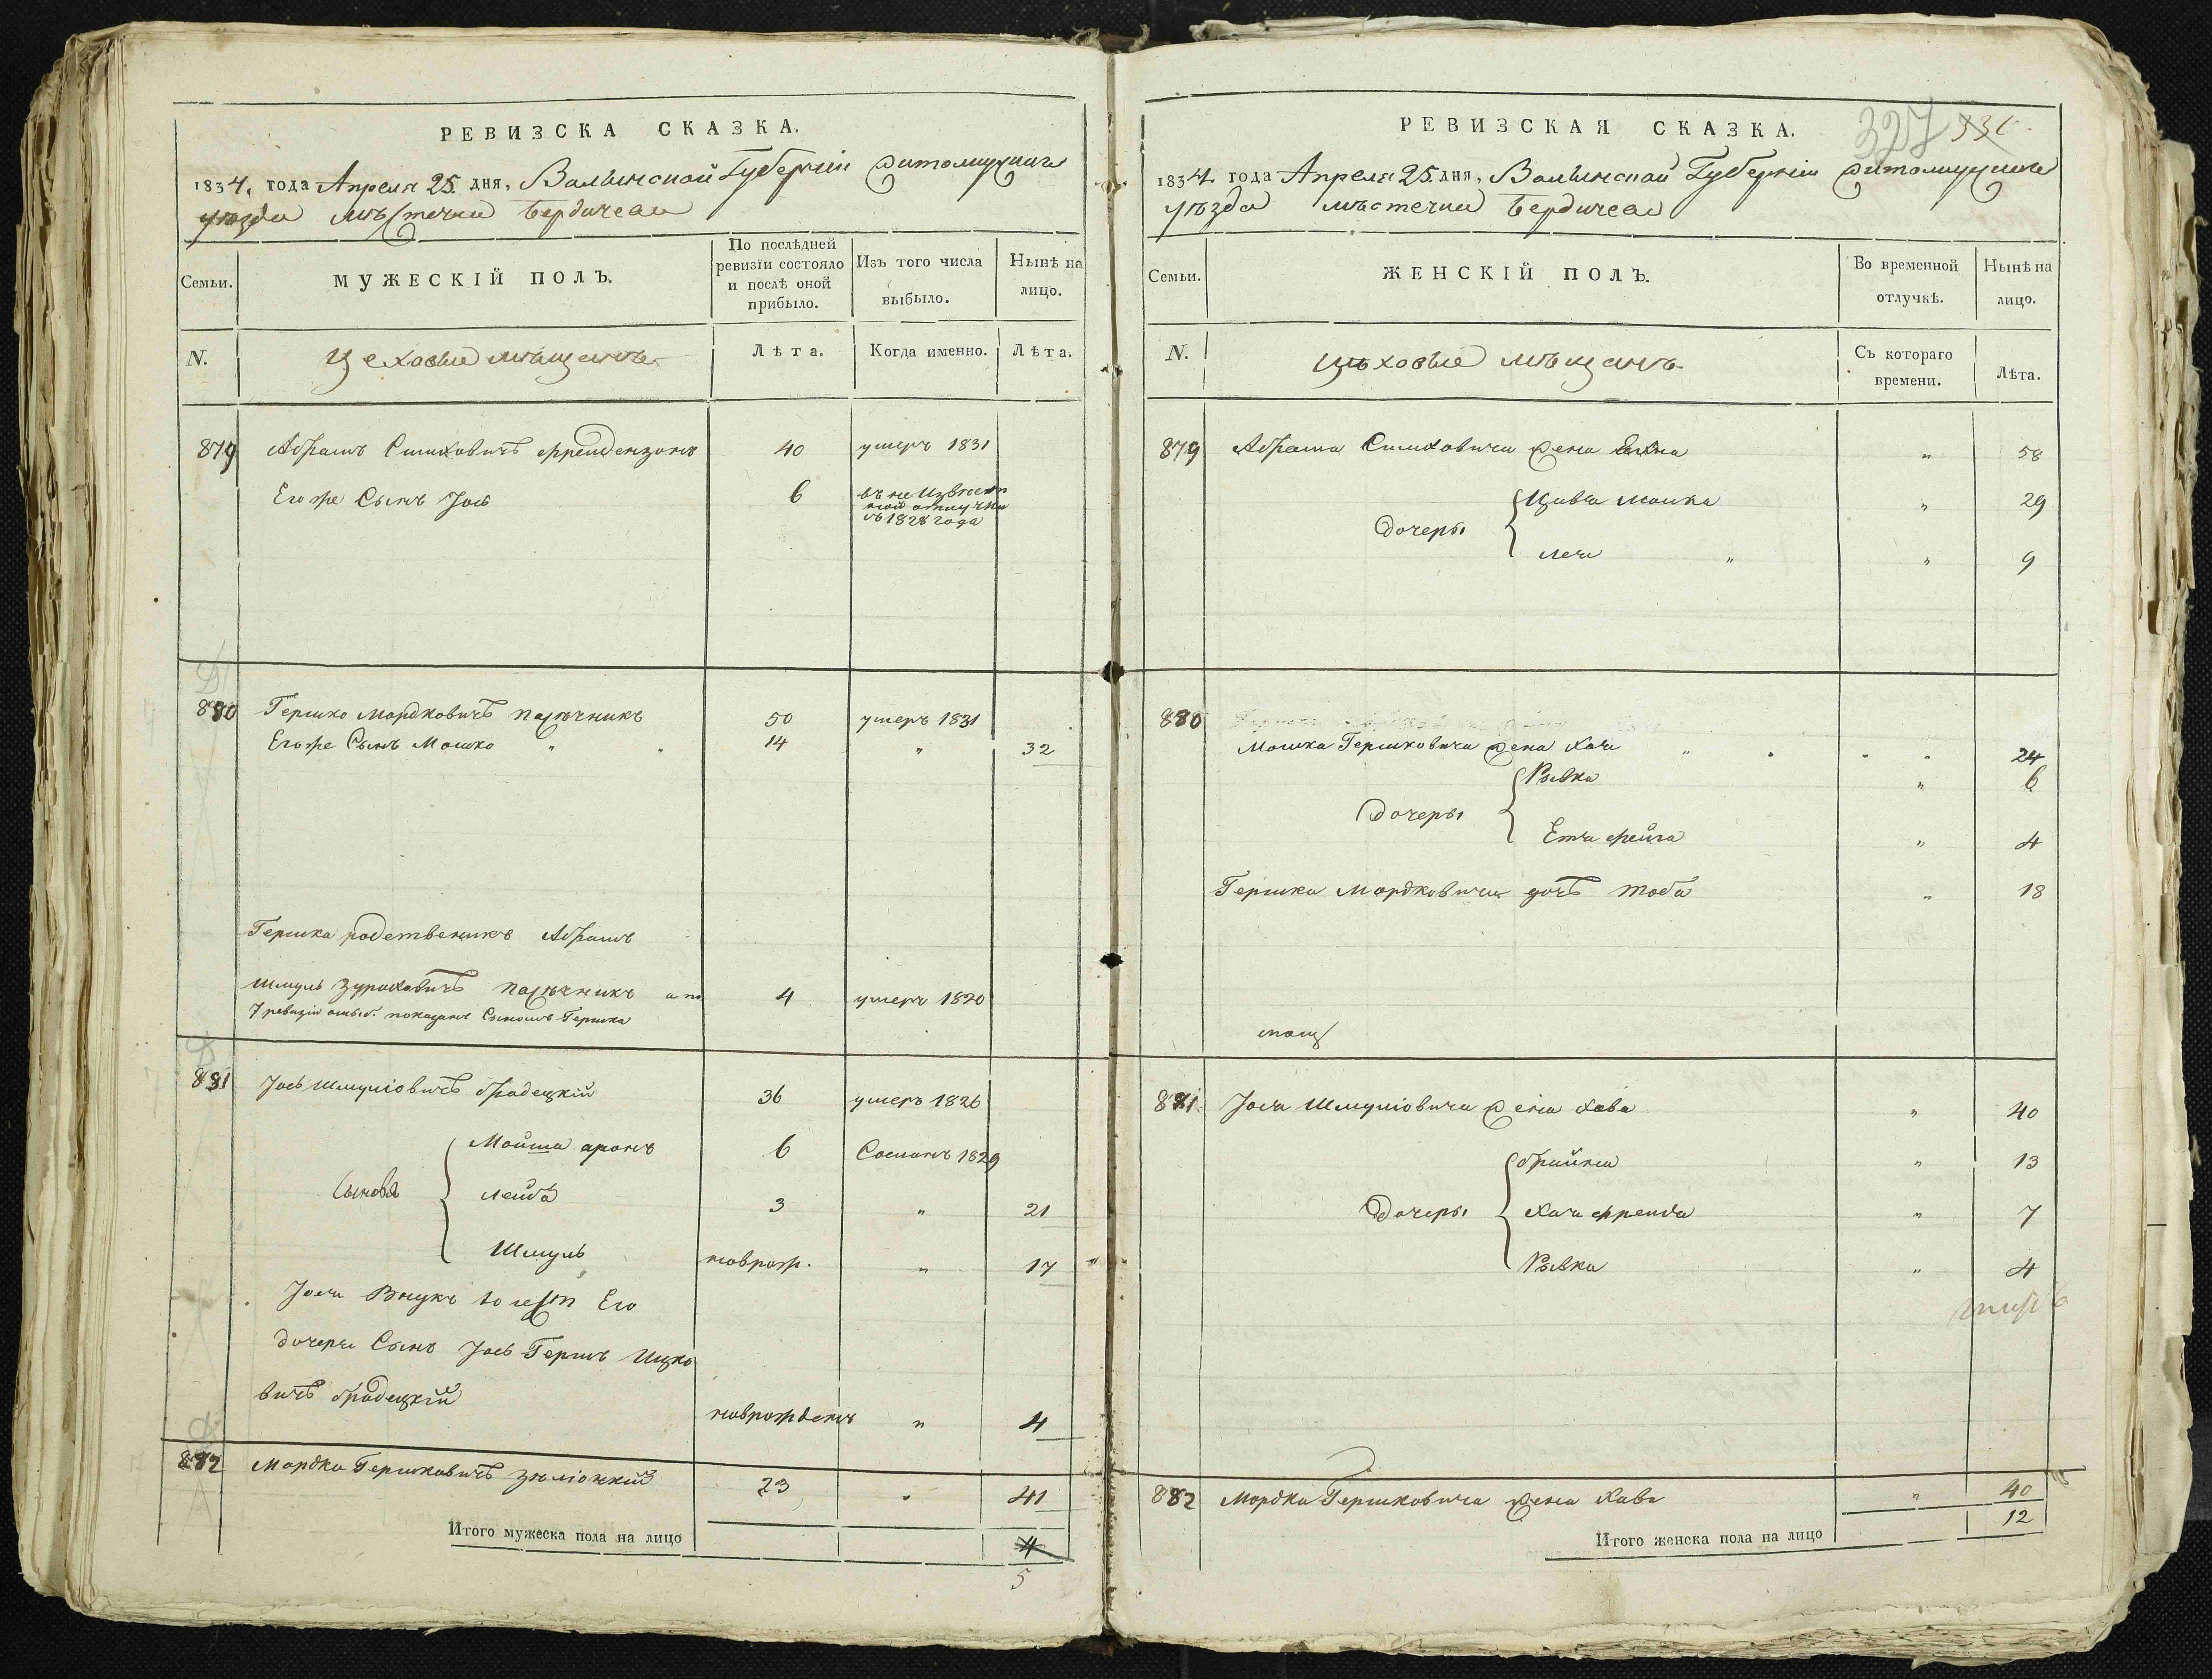 РЕВИЗСКА СКАЗКА.
1834. года Апреля 25. дня, Волынской Губернiи Житомирскаго
уѣзда мѣстечка Бердичева
Семьи.
МУЖЕСКIЙ ПОЛЪ.
По послѣдней ревизiи состояло и послѣ оной прибыло.
Изъ того числа выбыло.
Нынѣ на лицо.
N.
Цеховые мѣщане
Лѣта.
Когда именно.
Лѣта.
879 Абрамъ Симховичъ Френдензонъ 40 умеръ 1831
Его же Сынъ Іось 6 въ не извѣст
ной отлучки
съ 1828 года
880 Гершко Мордковичъ Пасѣчникъ 50 умеръ 1831
Его же Сынъ Мошко " " 14 " 32
Гершка родственикъ Абрамъ
Шмуль Зураховичъ Пасѣчникъ а по 4 умеръ 1820
7 ревизiи ошиб. показанъ Сыномъ Гершка
881 Іось Шмулiовичъ Брадецкiй 36 умеръ 1826
Сыновя
Мойша аронъ 6 Сосланъ 1829
Лейба 3 " 21
Шмуль новрож. " 17
Іося Внукъ то есть Его
дочери Сынъ Іось Гершъ Ицко
вичъ Брадецкiй новрожденъ " 4
882 Мордко Гершковичъ 23 " 41
Итого мужеска пола на лицо 4
5
РЕВИЗСКАЯ СКАЗКА.
327 330
1834 года Апреля 25. дня, Волынской Губернiи Житомирскаго
уѣзда мѣстечка Бердичева
Семьи.
ЖЕНСКIЙ ПОЛЪ.
Во временной отлучкѣ.
Нынѣ на лицо.
N.
Цѣховые мѣщане
Съ котораго времени.
Лѣта.
879 Абрама Симховича жена " 58
Дочеры
Цивья Малка " 29
Лея " " 9
880
Мошка Гершковича жена Хая " " " " 24
Дочеры
Рывка " 6
Етя фейга " 4
Гершка Мордковича дочь Тоба " 18
881 Іося Шмулiовича жена Хава " 40
Дочеры
Брайна " 13
Хая френда " 7
Рывка " 4
882 Мордка Гершковича жена Хава " 40
Итого женска пола на лицо 12